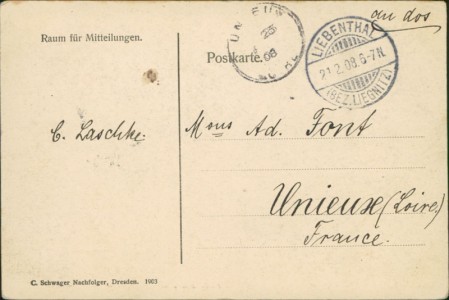 au dos
Raum für Mitteilungen.
Postkarte.
UNIEUX
25
08
LIEBENTHAL
21.2.08.6-7N.
(BEZ. LIEGNITZ)
C. Laschke.
Mons Ad. Font
Unieux (Loire)
France.
C. Schwager Nachfolger, Dresden. 1903